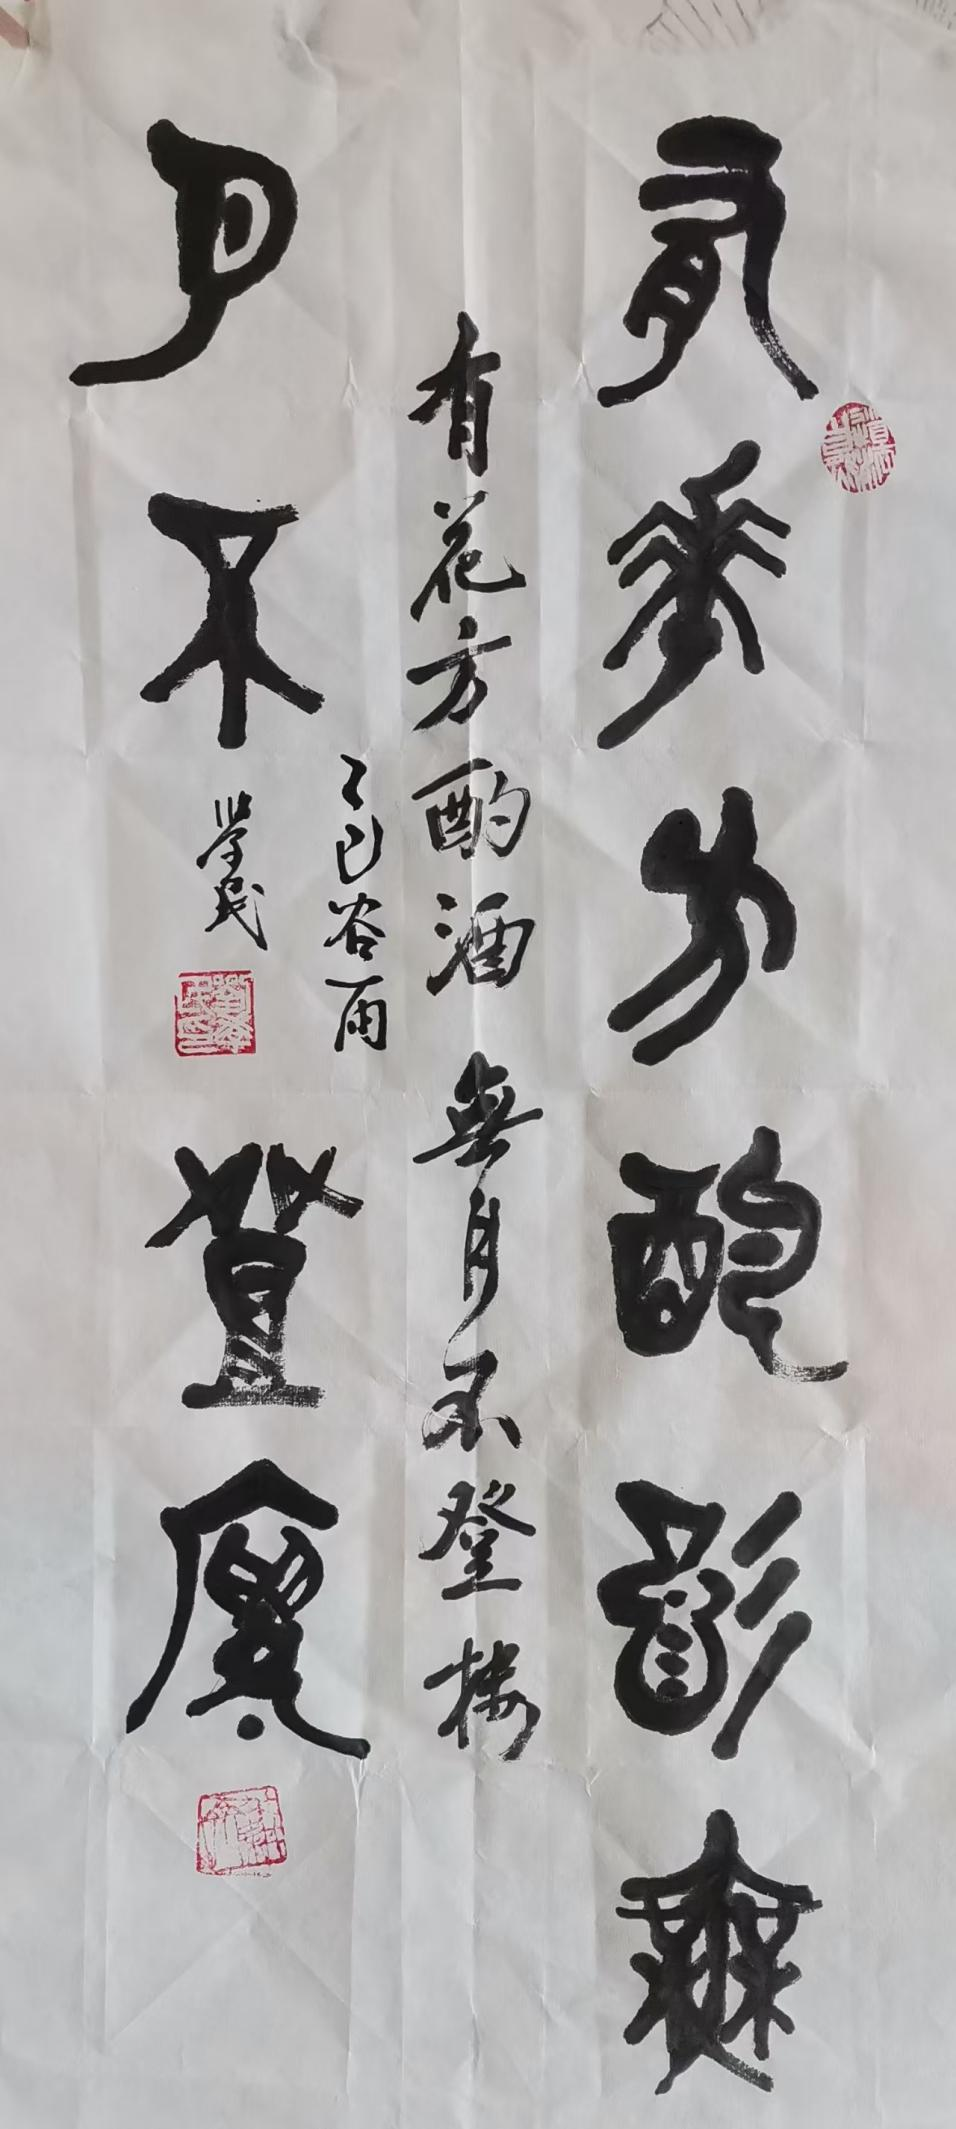 有華方酌酒無
有花方酌酒 無月不登楼
月不登廔
乙巳谷雨
學民